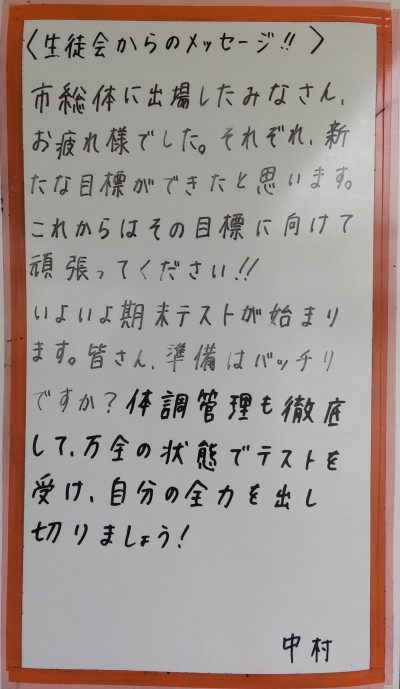 〈生徒会からのメッセージ!!〉
市総体に出場したみなさん、
お疲れ様でした。それぞれ、新
たな目標ができたと思います。
これからはその目標に向けて
頑張ってください!!
いよいよ期末テストが始まり
ます。皆さん、準備はバッチリ
ですか?体調管理も徹底
して、万全の状態でテストを
受け、自分の全力を出し
切りましょう!
中村